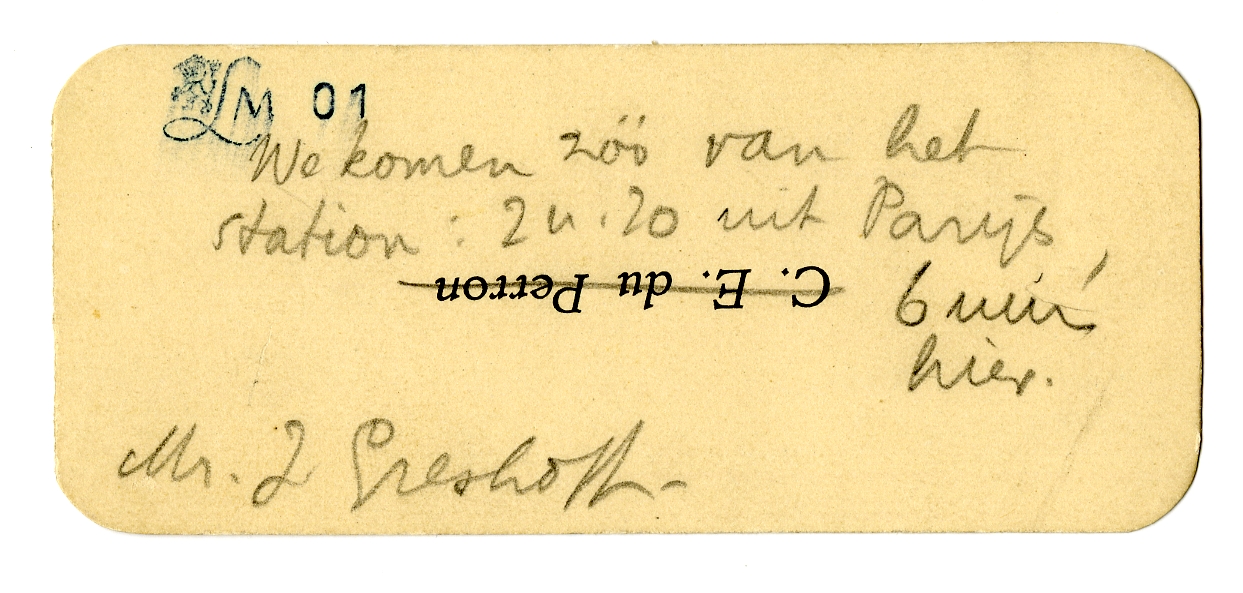 LM 01
We komen zóó van het
station: 2 u. 20 uit Parijs,
C. E. du Perron
6 uur
hier.
Mr. J Greshoff-